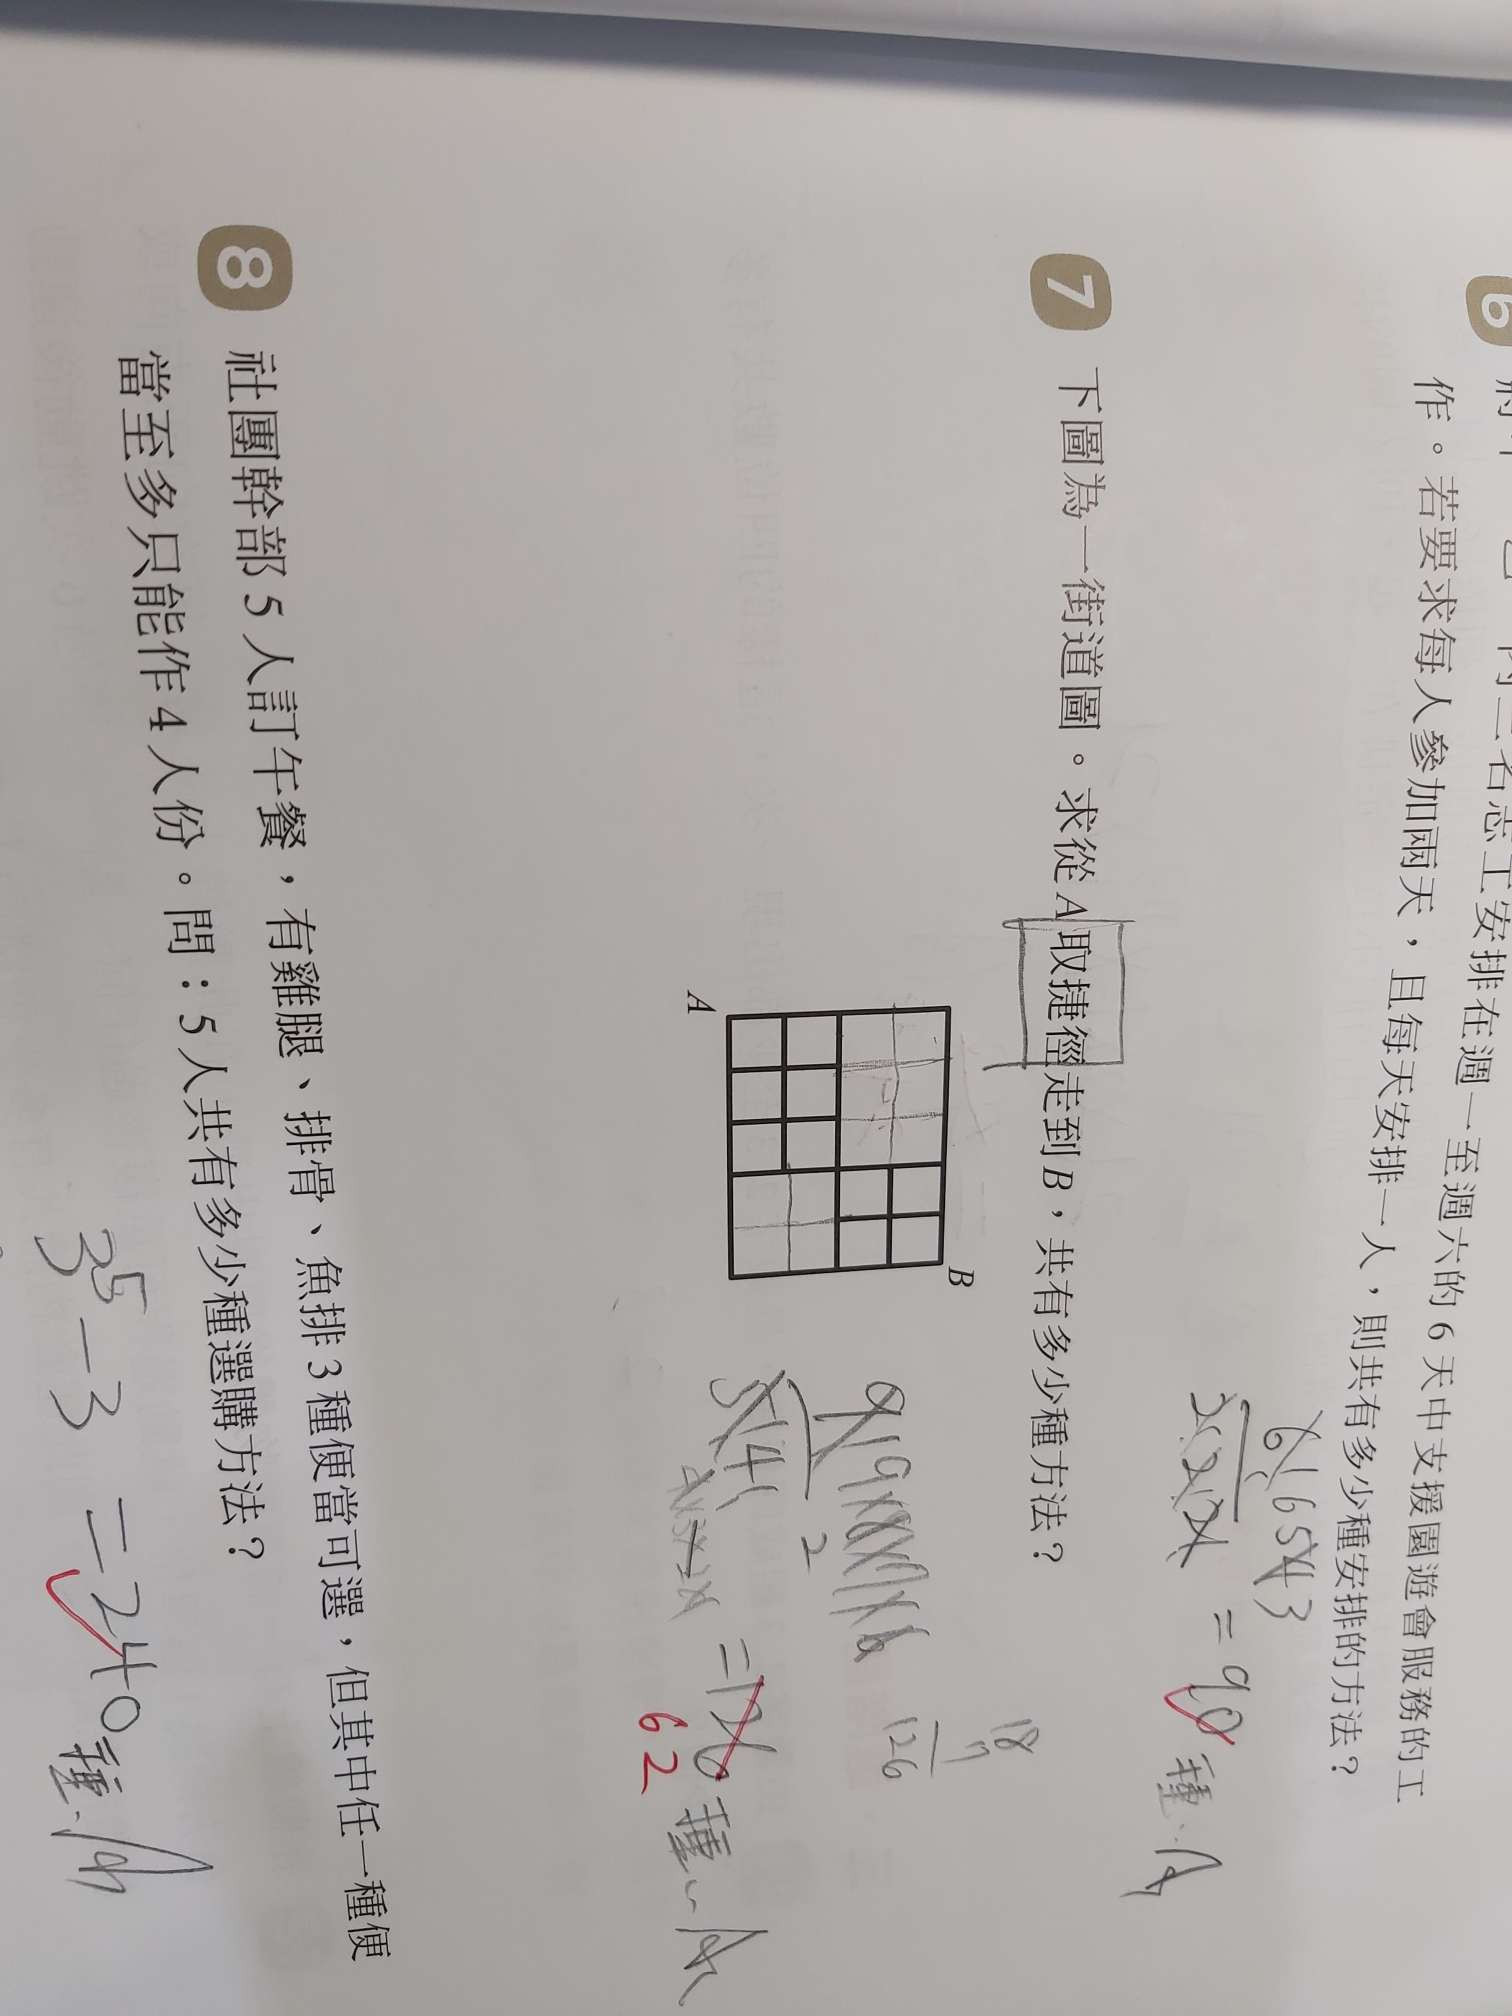 6
作。若要求每人參加兩天，且每天安排一人，則共有多少種安排的方法？
名志工安排在週一至週六的6天中支援園遊會服務的工
= 90 種
7 下圖為一街道圖。求從A取捷徑走到B，共有多少種方法？
A
B
18
7
126
= 126 種
62
8 社團幹部5人訂午餐，有雞腿、排骨、魚排3種便當可選，但其中任一種便
當至多只能作4人份。問：5人共有多少種選購方法？
3⁵ - 3 = 240 種